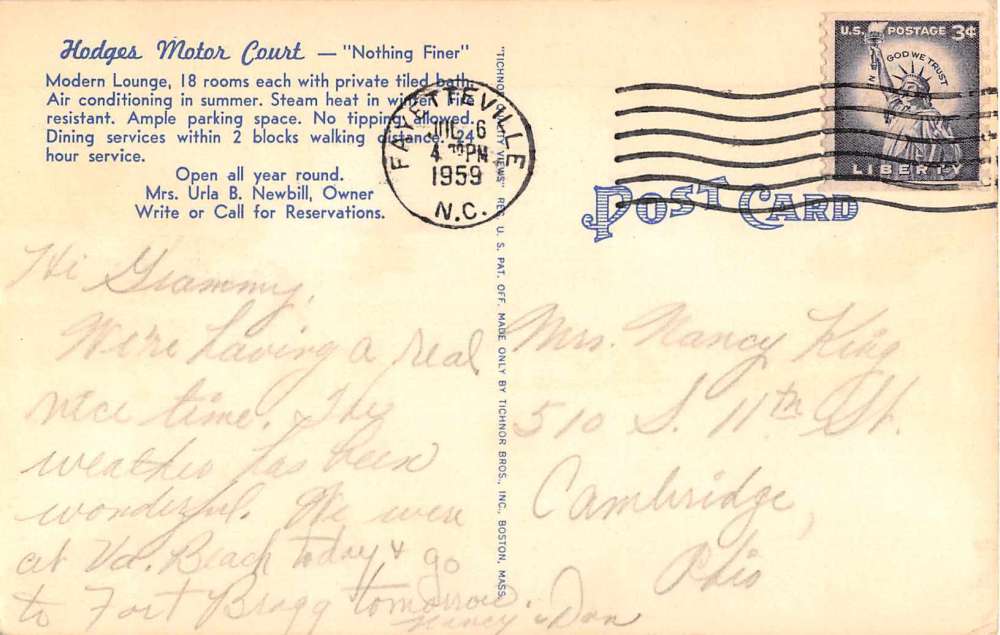 Hodges Motor Court — "Nothing Finer"
Modern Lounge, 18 rooms each with private tiled bath.
Air conditioning in summer. Steam heat in winter. Fire
resistant. Ample parking space. No tipping allowed.
Dining services within 2 blocks walking distance. 24
hour service.
Open all year round.
Mrs. Urla B. Newbill, Owner
Write or Call for Reservations.
Hi Grammy,
We're having a real
nice time. The
weather has been
wonderful. We were
at Va. Beach today & go
to Fort Bragg tomorrow.
Nancy & Dan
"TICHNOR QUALITY VIEWS" REG. U. S. PAT. OFF. MADE ONLY BY TICHNOR BROS., INC., BOSTON, MASS.
FAYETTEVILLE
JUL 6
4 PM
1959
N.C.
U.S. POSTAGE 3¢
IN GOD WE TRUST
LIBERTY
POST CARD
Mrs. Nancy King
510 S. 11th St.
Cambridge,
Ohio